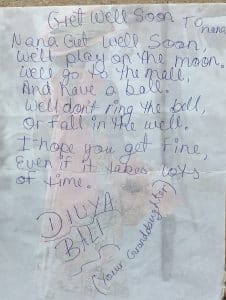 Get Well Soon To nana
Nana Get Well Soon,
We'll play on the moon.
We'll go to the mall,
And have a ball.
We'll don't ring the ball,
Or fall in the well.
I hope you get fine,
Even if it takes lots
of time.
DIUYA
BALI
(Your Granddaughter)